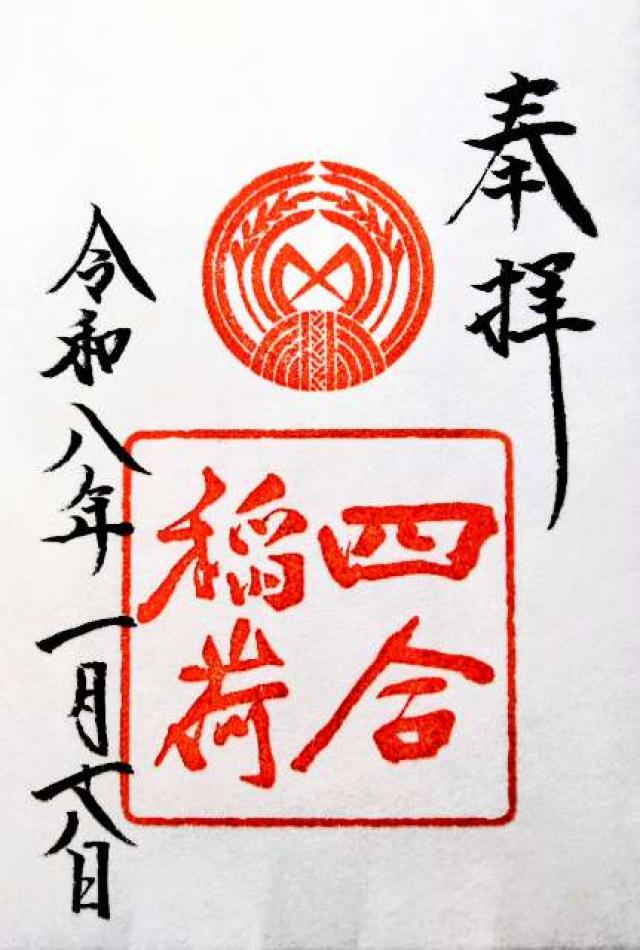 奉拝
四合
稲荷
令和八年一月十八日